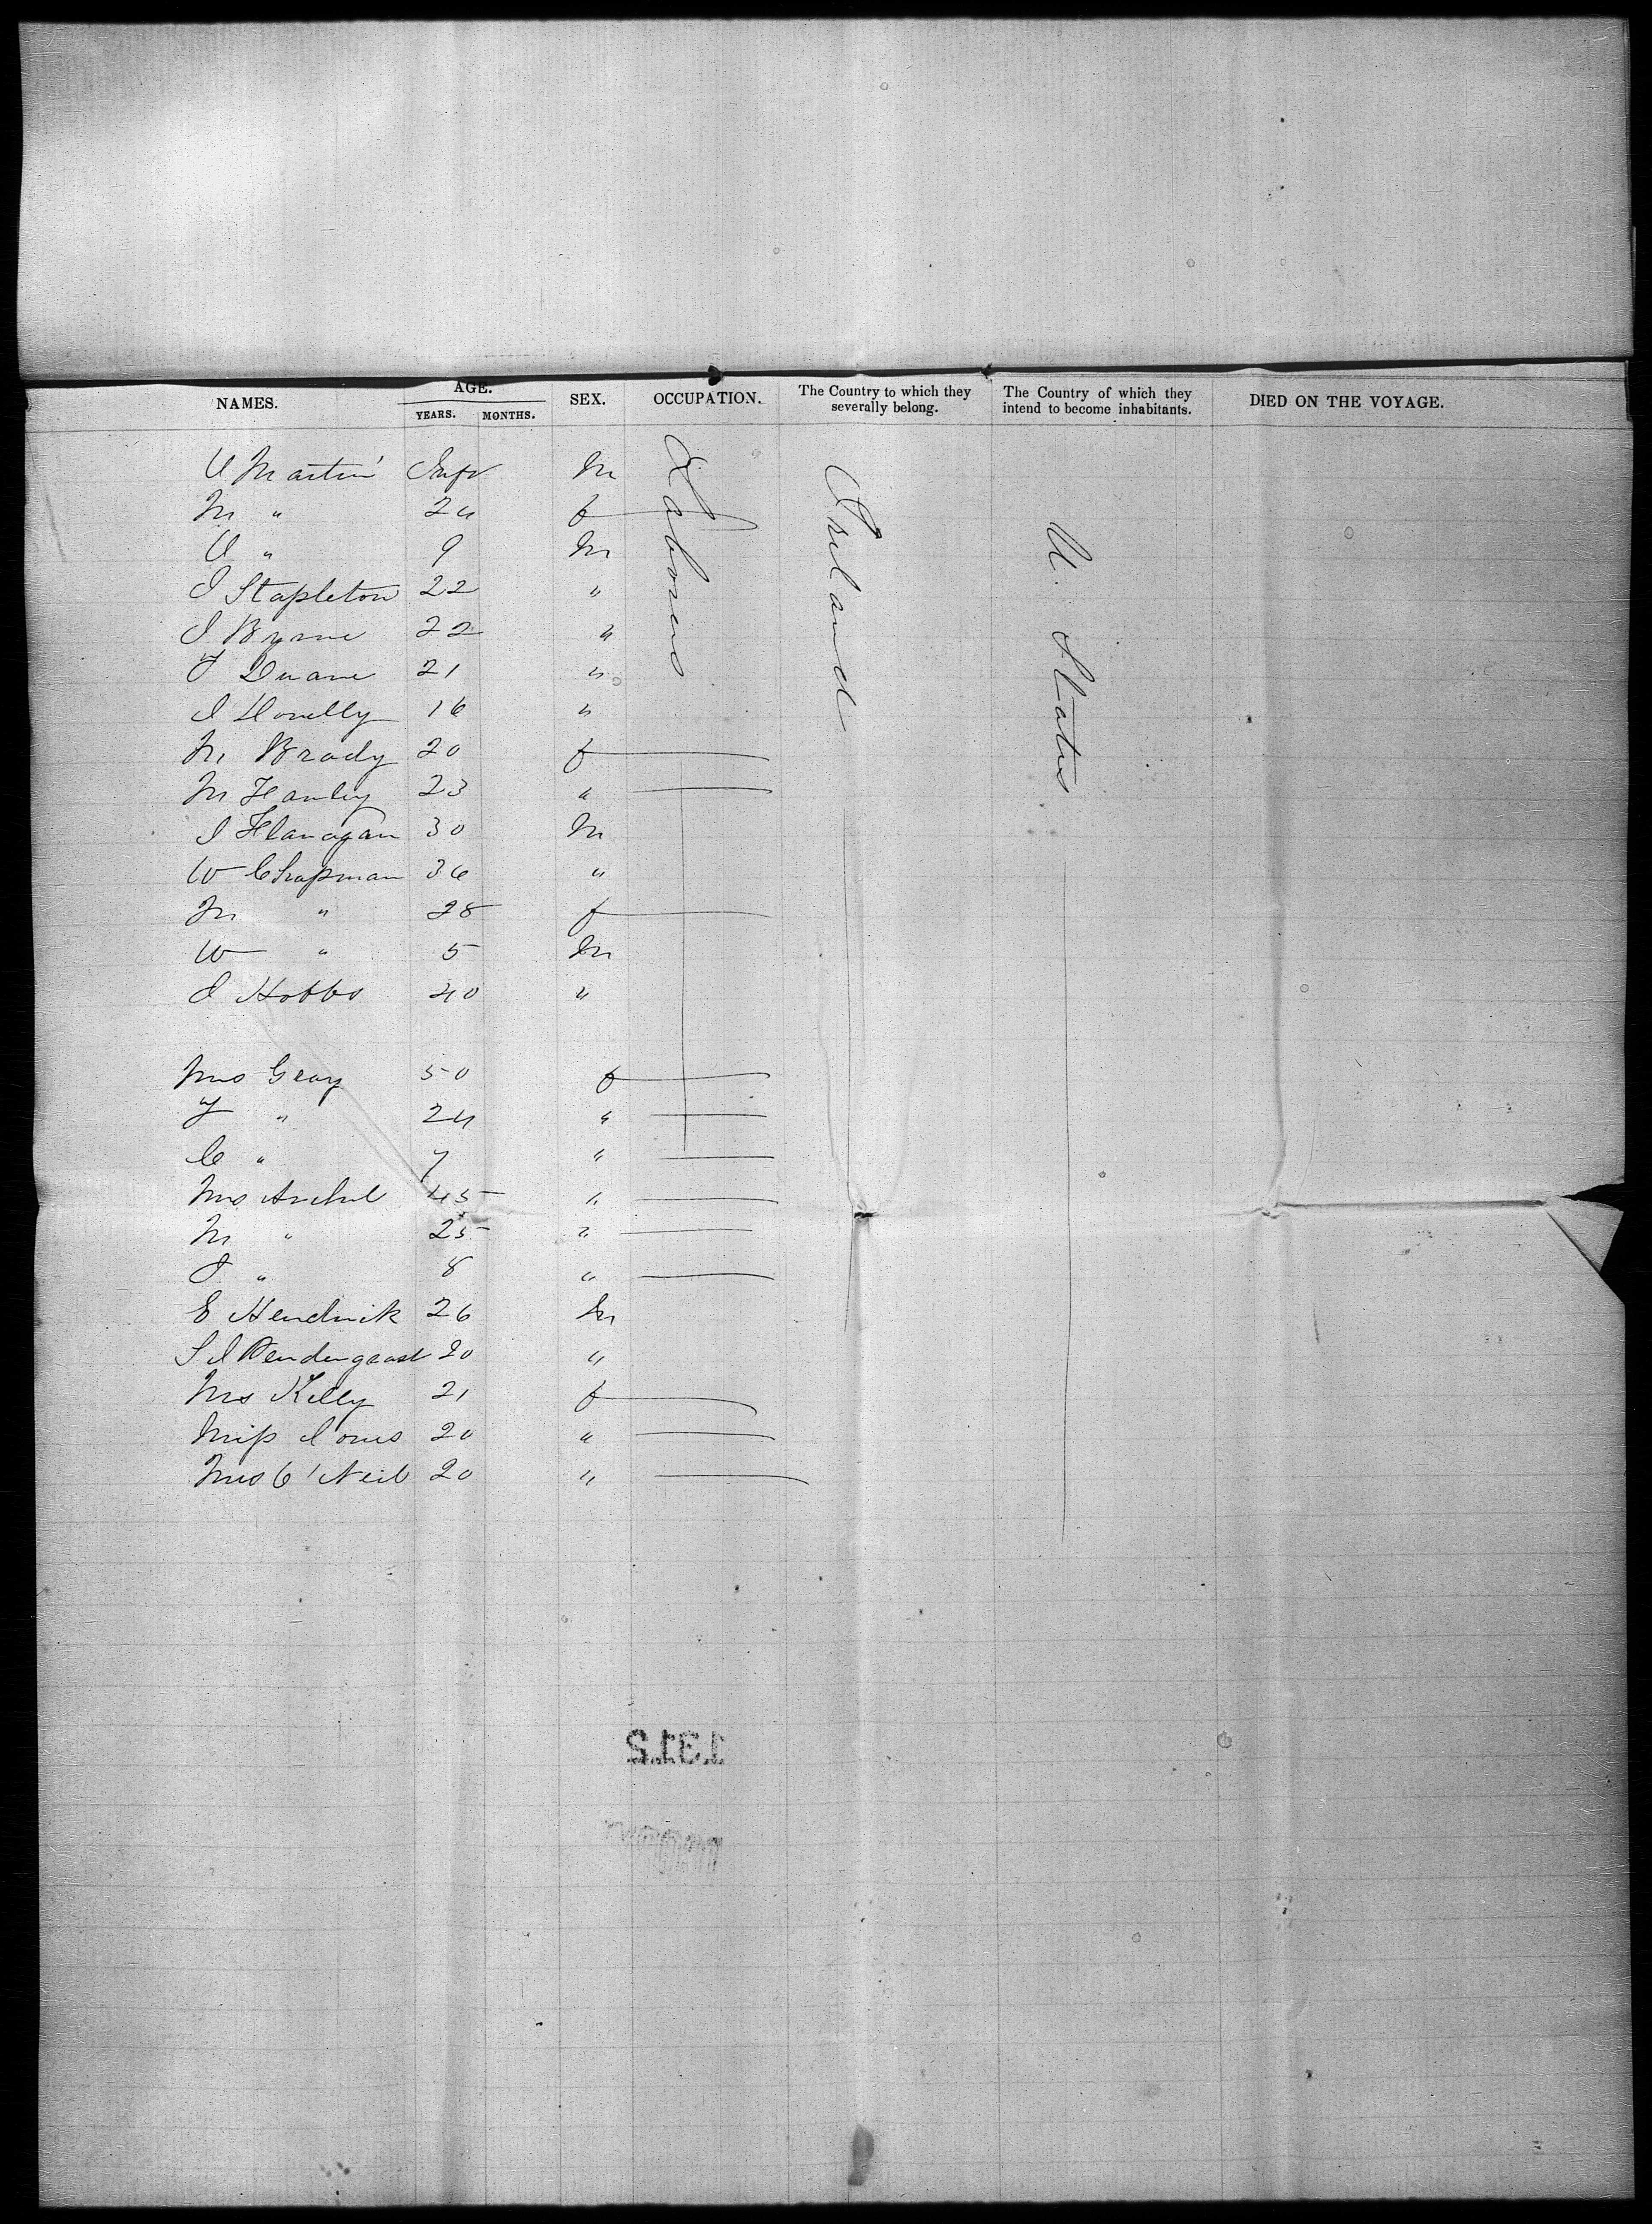 NAMES. AGE. YEARS. MONTHS. SEX. OCCUPATION. The Country to which they severally belong. The Country of which they intend to become inhabitants. DIED ON THE VOYAGE.
U Martin Inft M
M " 24 f
U " 9 M
J Stapleton 22 "
J Byrne 22 "
T Duane 21 "
J Donelly 16 "
M Brady 20 f
M Hanley 23 "
J Flanagan 30 M
W Chapman 36 "
M " 28 f
W " 5 M
J Hobbs 40 "
Labourers
Ireland
U. States
Mrs Gray 50 f
T " 24 "
C " 7 "
Mrs 45 "
M " 25 "
J " 8 "
E Hendrick 26 M
S J Pendergrast 20 "
Mrs Kelly 21 f
Miss Jones 20 "
Mrs O'Neil 20 "
1312